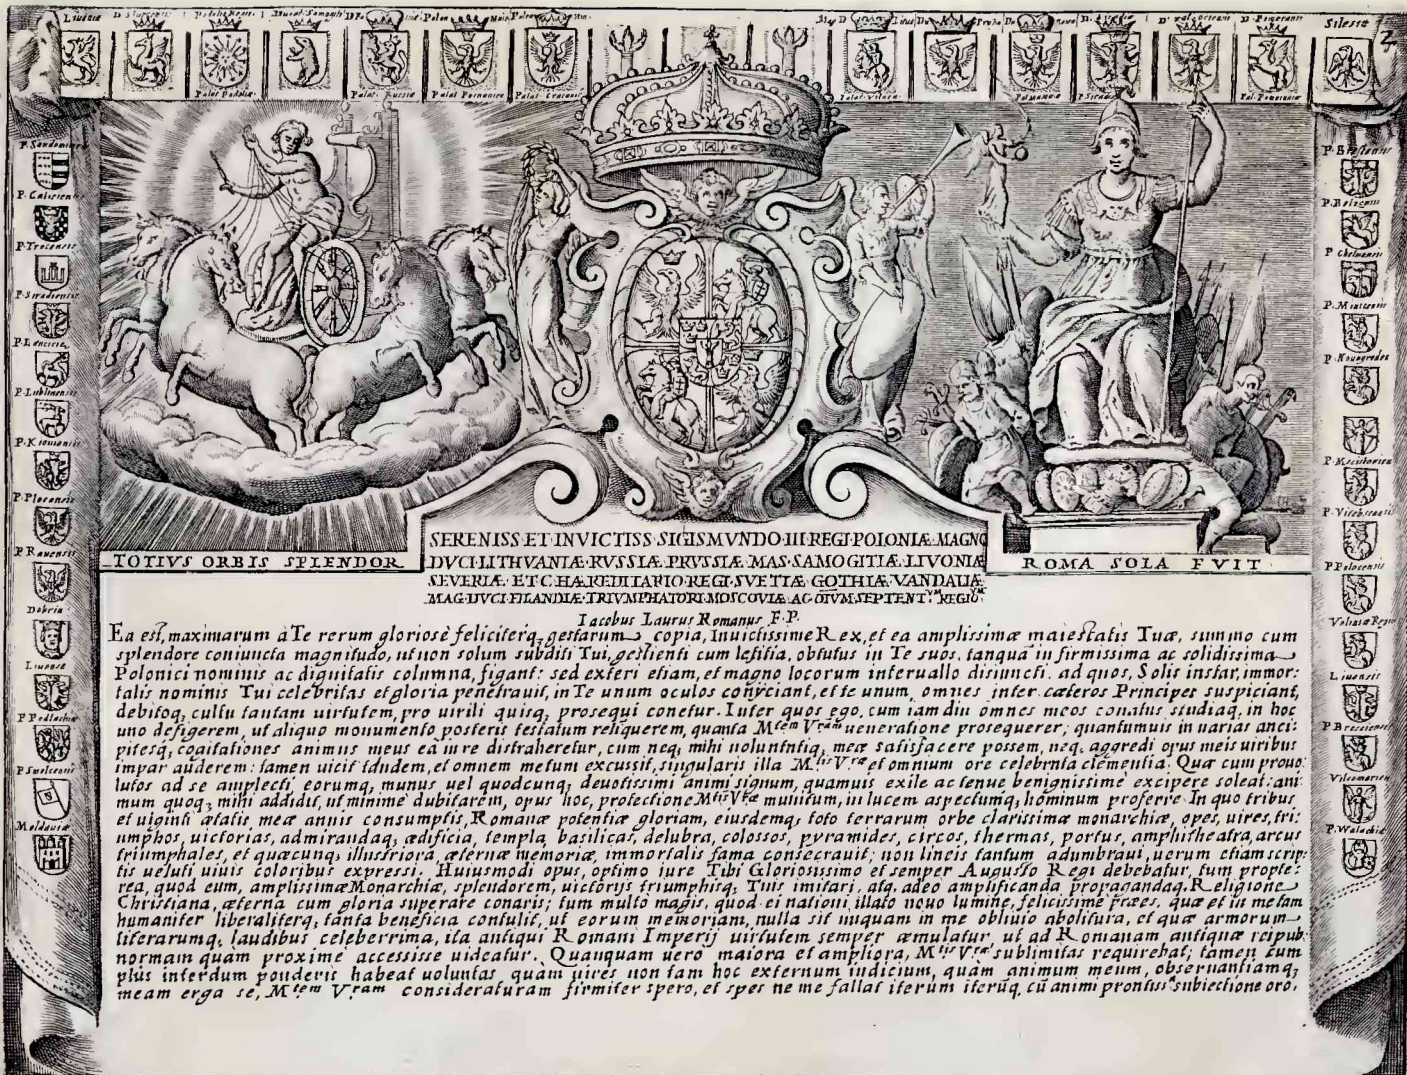 Liuoniæ
Palat. Podoliæ
Palat. Russiæ
Palat Posnanien
Palat. Cracouien
Silesiæ
2
P. Sendomirien
P. Calisiensis
P. Trocensis
P. Siradiensis
P. Lencicie
P. Lublinensis
P. Kiouiensis
P. Plocensis
P. Rauensis
Dobrin
Liuonsæ
P. Podlachiæ
P. Smolcensis
Moldauiæ
P. Belzensis
P. Mscislouien
P. Vitebscensis
P. Polocensis
Liuensis
P. Brestiensis
P. Walachiæ
TOTIVS ORBIS SPLENDOR
ROMA SOLA FVIT
SERENISS·ET·INVICTISS·SIGISMVNDO·III·REGI·POLONIÆ·MAGNO
DVCI·LITHVANIÆ·RVSSIÆ·PRVSSIÆ·MAS·SAMOGITIÆ·LIVONIÆ
SEVERIÆ·ETC·HÆREDITARIO·REGI·SVETIÆ·GOTHIÆ·VANDALIÆ
MAG·DVCI·FILANDIÆ·TRIVMPHATORI·MOSCOVIÆ·AC·OIVM·SEPTENT^VM REGIO^VM
Iacobus Laurus Romanus F.P.
Ea est, maximarum à Te rerum gloriosè feliciterq; gestarum copia, Inuictissime Rex, et ea amplissimæ maiestatis Tuæ, summo cum
splendore coniuncta magnitudo, ut non solum subditi Tui, gestienti cum letitia, obtutus in Te suos, tanquã in firmissima ac solidissima
Polonici nominis ac dignitatis columna, figant: sed exteri etiam, et magno locorum interuallo disiuncti. ad quos, Solis instar, immor:
talis nominis Tui celebritas et gloria penetrauit, in Te unum oculos conijciant, et te unum, omnes inter cæteros Principes suspiciant,
debitoq; cultu tantam uirtutem, pro uirili quisq; prosequi conetur. Inter quos ego, cum iam diu omnes meos conatus studiaq; in hoc
uno defigerem, ut aliquo monumento posteris testatum reliquerem, quanta M^tem V^ram ueneratione prosequerer; quantumuis in uarias anci:
pitesq; cogitationes animus meus eã in re distraheretur, cum neq; mihi uoluntatiq; meæ satisfacere possem, neq; aggredi opus meis uiribus
impar auderem: tamen uicit tandem, et omnem metum excussit, singularis illa M^tis V^ræ et omnium ore celebrata clementia. Quæ cum prouo:
lutos ad se amplecti, eorumq; munus uel quodcunq; deuotissimi animi signum, quamuis exile ac tenue benignissimè excipere soleat: ani
mum quoq; mihi addidit, ut minimè dubitarem, opus hoc, protectione M^tis V^ræ munitum, in lucem aspectumq; hominum proferre. In quo tribus
et uiginti ætatis meæ annis consumptis, Romanæ potentiæ gloriam, eiusdemq; toto terrarum orbe clarissimæ monarchiæ, opes, uires, tri:
umphos, uictorias, admirandaq; ædificia, templa, basilicas, delubra, colossos, pyramides, circos, thermas, portus, amphitheatra, arcus
triumphales, et quæcunq; illustriora, æternæ memoriæ, immortalis fama consecrauit; non lineis tantum adumbraui, uerum etiam scrip:
tis ueluti uiuis coloribus expressi. Huiusmodi opus, optimo iure Tibi Gloriosissimo et semper Augusto Regi debebatur, tum propte:
rea, quod eum, amplissimæ Monarchiæ, splendorem, uictorijs triumphisq; Tuis imitari, atq; adeo amplificanda propagandaq. Religione
Christiana, æterna cum gloria superare conaris; tum multò magis, quod ei nationi, illato nouo lumine, felicissimè præes, quæ et in metam
humaniter liberaliterq; tanta beneficia contulit, ut eorum memoriam, nulla sit unquam in me obliuio abolitura, et quæ armorum
literarumq; laudibus celeberrima, ita antiqui Romani Imperij uirtutem semper æmulatur ut ad Romanam, antiquæ reipub:
normam quam proximè accessisse uideatur. Quanquam uerò maiora et ampliora, M^tis V^ræ sublimitas requirebat; tamen cum
plus interdum ponderis habeat uoluntas quàm uires non tam hoc externum indicium, quàm animum meum, obseruantiamq;
meam erga se, M^tem V^ram consideraturam firmiter spero, et spes ne me fallat iterum iterũq. cũ animi prontiss^a subiectione oro.